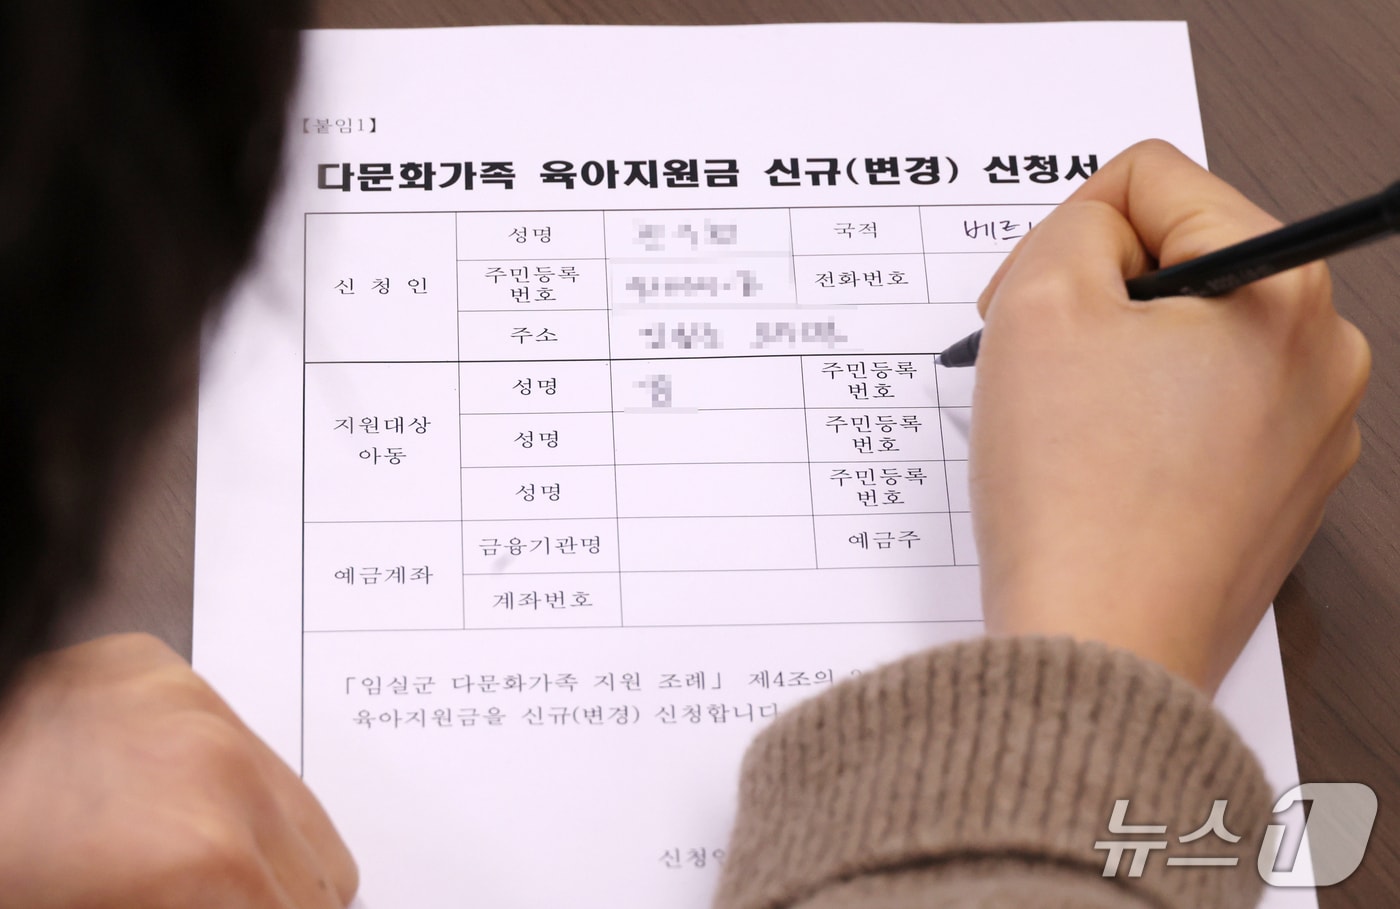 【붙임1】
다문화가족 육아지원금 신규(변경) 신청서
신 청 인
성명
국적
베트
주민등록
번호
전화번호
주소
지원대상
아동
성명
주민등록
번호
성명
주민등록
번호
성명
주민등록
번호
예금계좌
금융기관명
예금주
계좌번호
「임실군 다문화가족 지원 조례」 제4조의
육아지원금을 신규(변경) 신청합니다
신청인
뉴스1